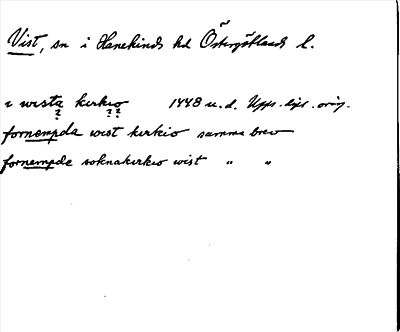 Vist, sn i Hanekinds hd Östergötlands l.
i wista kirkio 1448 u.d. Upps. bpl. orig.
? ? ?
fornempda wist kirkio samma brev
fornempde soknakirkio wist " "